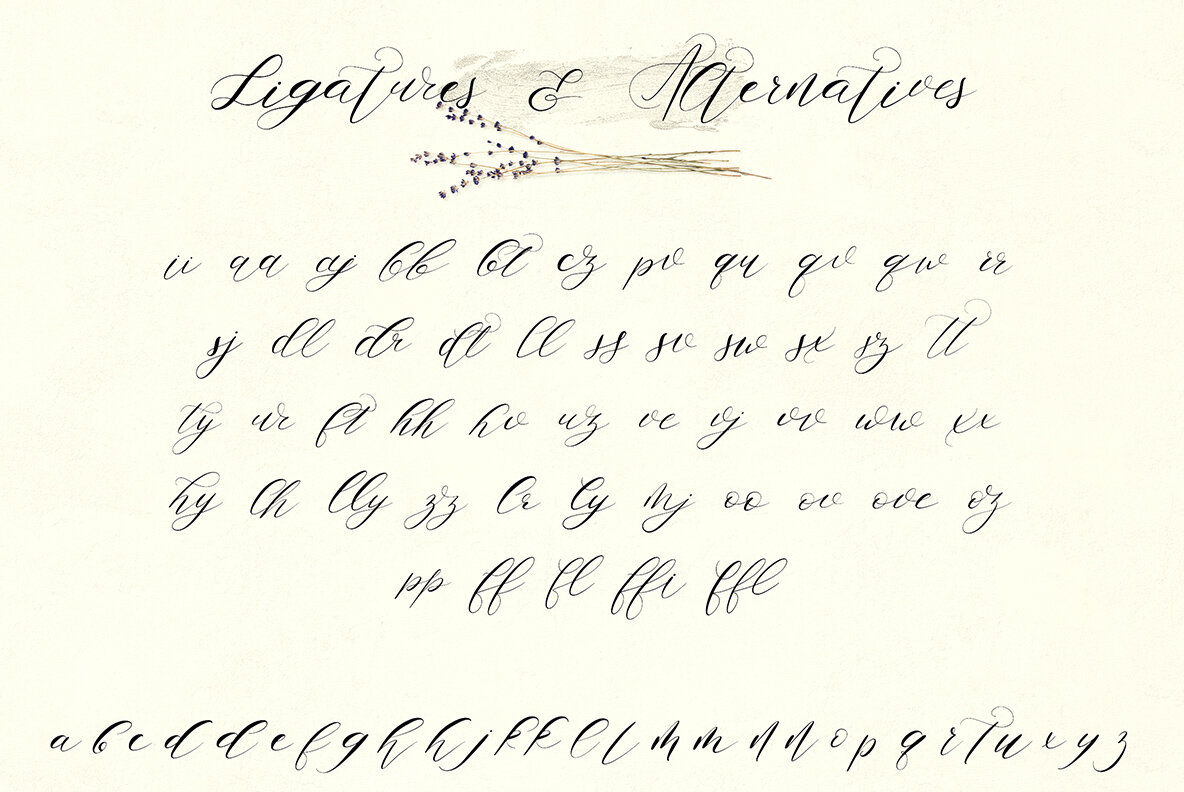 Ligatures & Alternatives
ii aa aj bb bt cz pv qu qv qw rr
sj dl dr dt ll ss sv sw sx sz tt
ty ur ft hh hv uz ve vj vv ww xx
hy lh lly zz lr ly mj oo ov ove oz
pp ff fl ffi ffl
a b c d d e f g h h j k k l l m m n n o p q r t u x y z